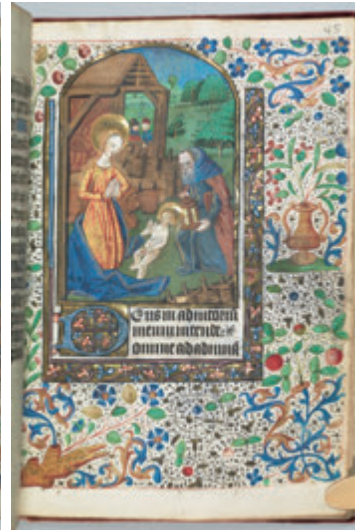 45
Eus in adiutoriu
meum intende
omine ad adiuua